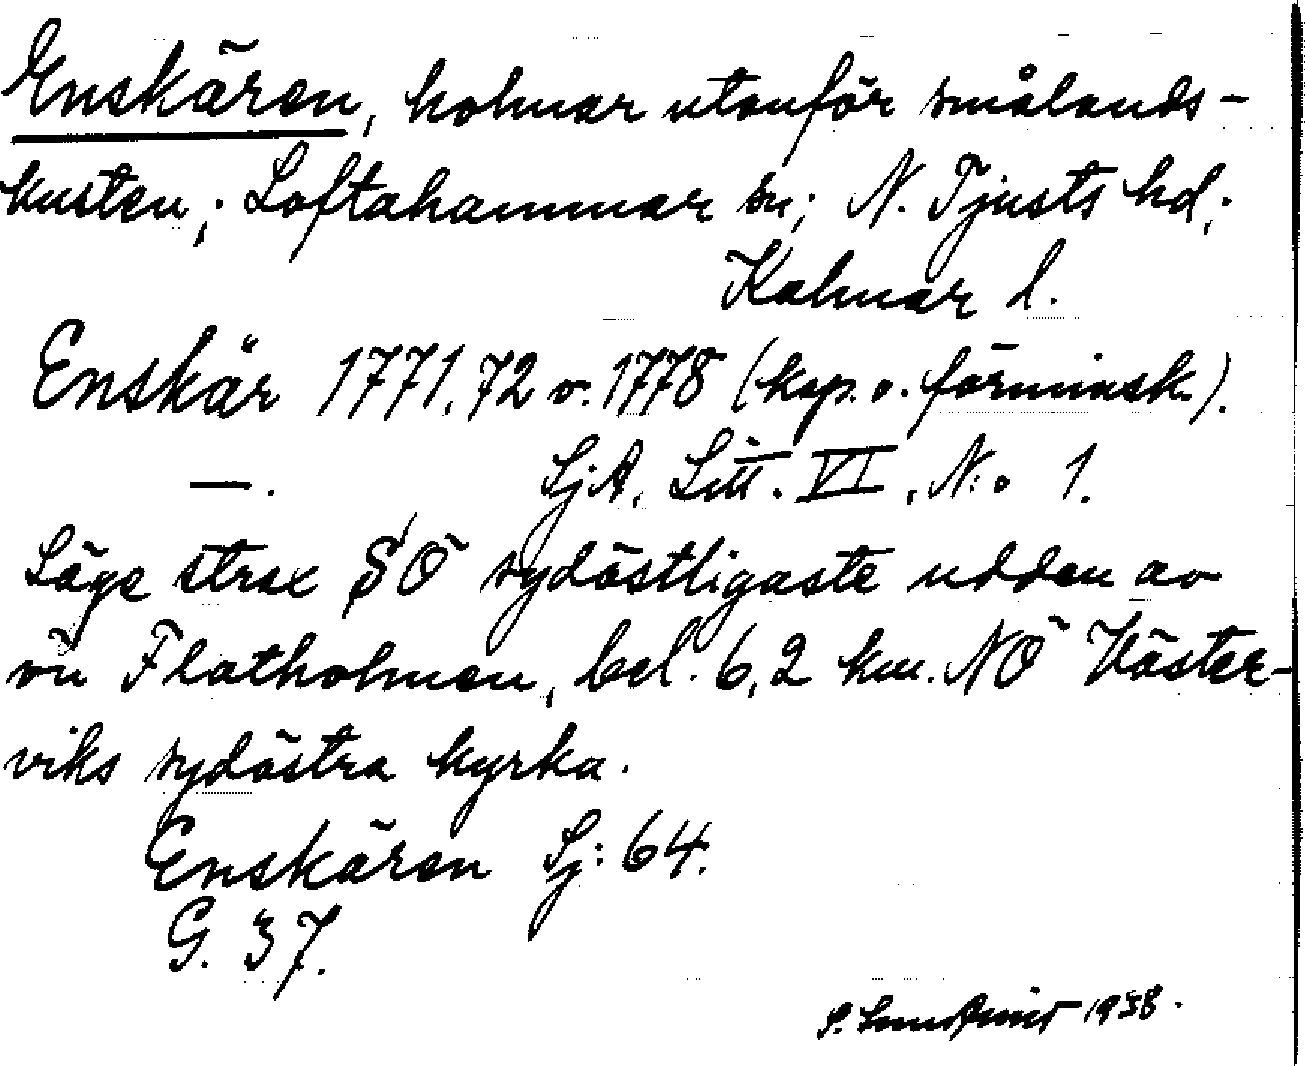 Enskären, holmar utanför smålands-
kusten; Loftahammar sn; N. Tjusts hd;
Kalmar l.
Enskär 1771, 72 o. 1778 (kop. o. förminsk.).
—. SjA, Litt. VI, N:o 1.
Läge strax SÖ sydöstligaste udden av
ön Flatholmen, bel. 6,2 km. NÖ Väster-
viks sydöstra kyrka.
Enskären Sj: 64.
G. 37.
S. 1938.